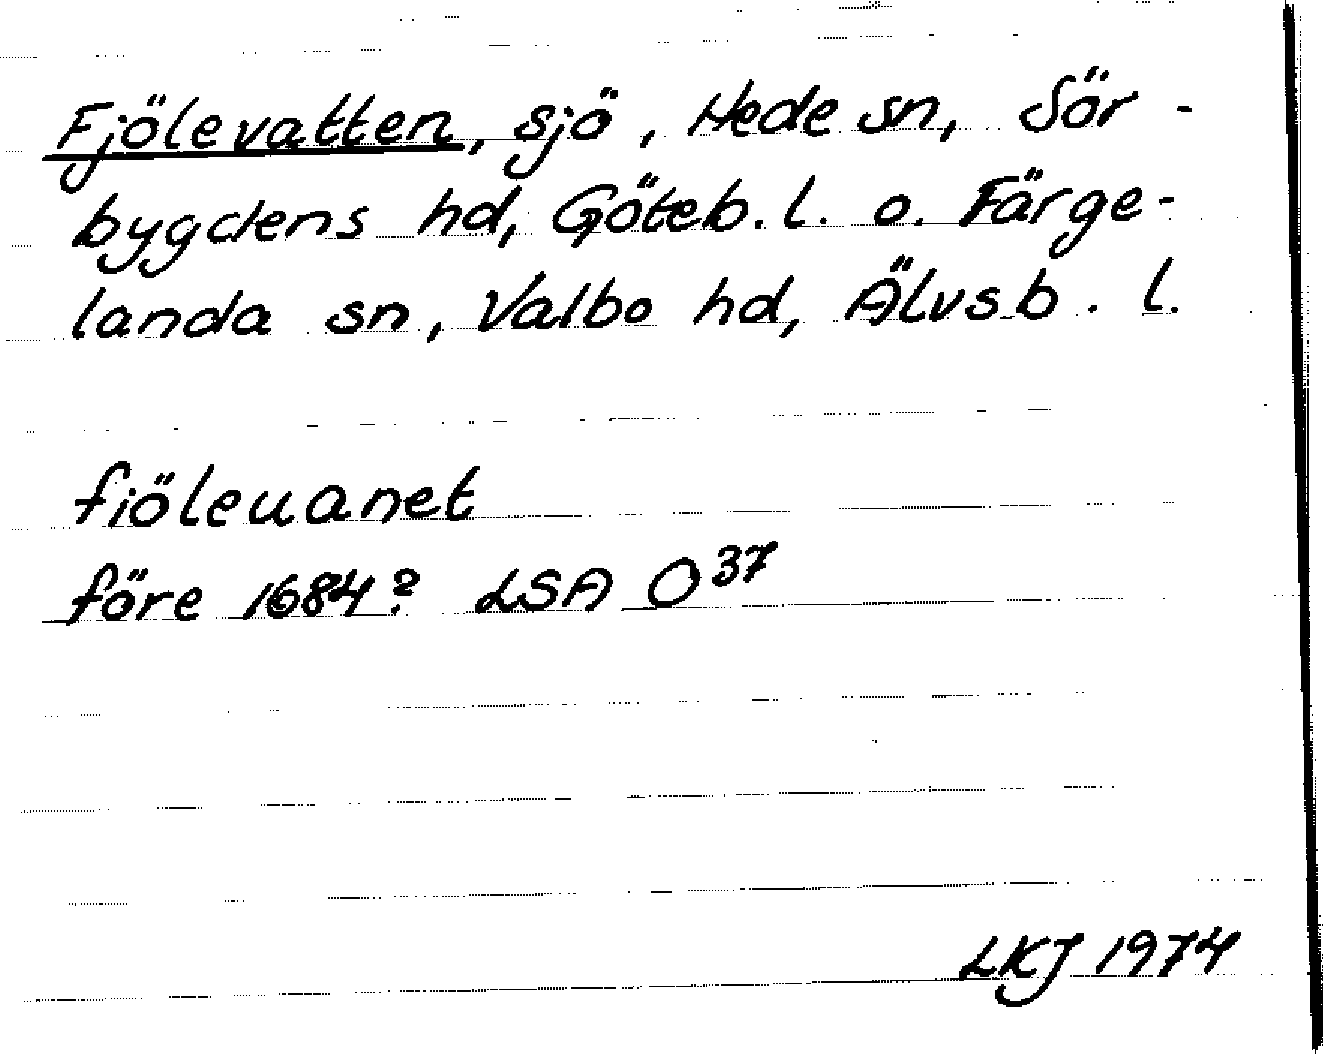 Fjölevatten, sjö, Hede sn, Sör-
bygdens hd, Göteb. l. o. Färge-
landa sn, Valbo hd, Älvsb. l.
fiöleuanet
före 1684? LSA O³⁷
LKJ 1974